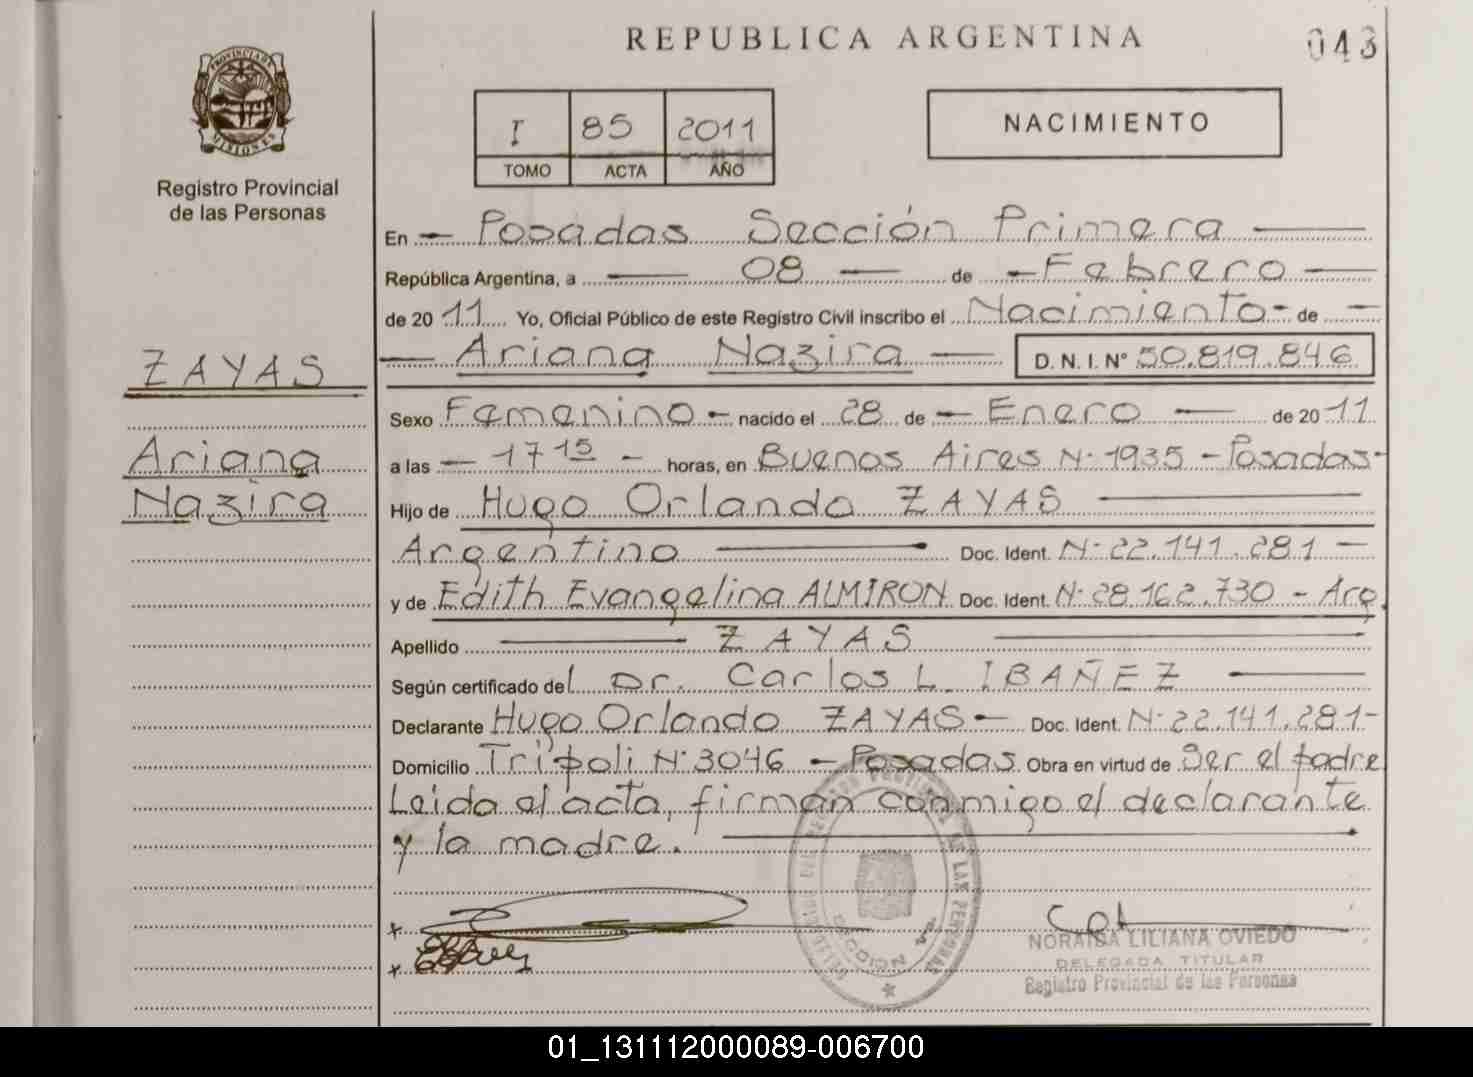 REPUBLICA ARGENTINA
043
PROVINCIA DE MISIONES
Registro Provincial
de las Personas
I 85 2011
TOMO ACTA AÑO
NACIMIENTO
En Posadas Sección Primera
República Argentina, a 08 de Febrero
de 2011 Yo, Oficial Público de este Registro Civil inscribo el Nacimiento de
Ariana Nazira D. N. I. Nº 50.819.846
ZAYAS
Ariana
Nazira
Sexo Femenino nacido el 28 de Enero de 2011
a las 17 15 horas, en Buenos Aires N· 1935 - Posadas-
Hijo de Hugo Orlando ZAYAS
Argentino Doc. Ident. N· 22.141.281
y de Edith Evangelina ALMIRON Doc. Ident. N· 28.162.730 - Arg.
Apellido ZAYAS
Según certificado del Dr. Carlos L. IBAÑEZ
Declarante Hugo Orlando ZAYAS Doc. Ident. N· 22.141.281-
Domicilio Tripoli N· 3046 - Posadas Obra en virtud de ser el padre
Leida el acta, firman conmigo el declarante
y la madre.
NORAIDA LILIANA OVIEDO
DELEGADA TITULAR
Registro Provincial de las Personas
01_131112000089-006700